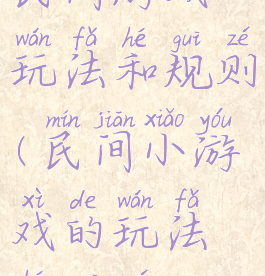 wán fǎ hé guī zé
玩法和规则
mín jiān xiǎo yóu
(民间小游
xì de wán fǎ
戏的玩法